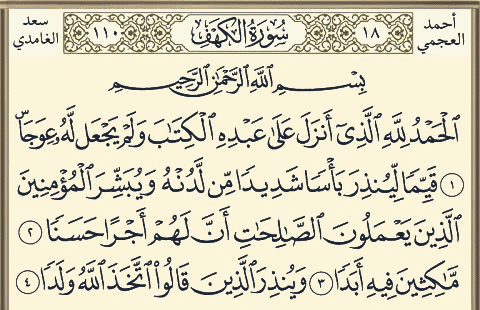 أحمد العجمي ١٨ سُورَةُ الكَهْفِ ١١٠ سعد الغامدي
بِسْمِ اللَّهِ الرَّحْمَٰنِ الرَّحِيمِ
الْحَمْدُ لِلَّهِ الَّذِي أَنزَلَ عَلَىٰ عَبْدِهِ الْكِتَابَ وَلَمْ يَجْعَل لَّهُ عِوَجَا ۜ
١ قَيِّمًا لِّيُنذِرَ بَأْسًا شَدِيدًا مِّن لَّدُنْهُ وَيُبَشِّرَ الْمُؤْمِنِينَ
الَّذِينَ يَعْمَلُونَ الصَّالِحَاتِ أَنَّ لَهُمْ أَجْرًا حَسَنًا ٢
مَّاكِثِينَ فِيهِ أَبَدًا ٣ وَيُنذِرَ الَّذِينَ قَالُوا اتَّخَذَ اللَّهُ وَلَدًا ٤